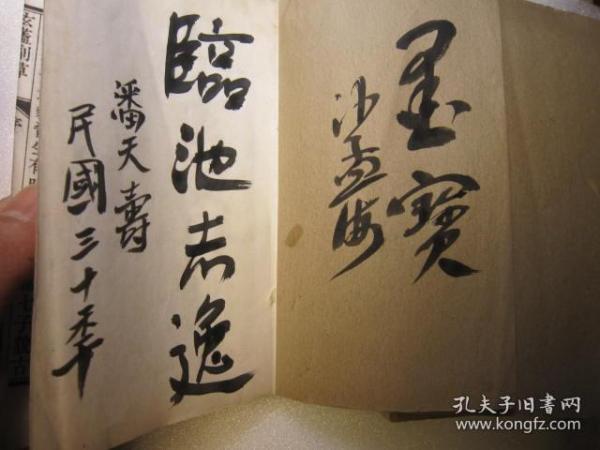 墨寶
沙孟海
臨池志逸
潘天壽
民國三十年
孔夫子旧书网
www.kongfz.com